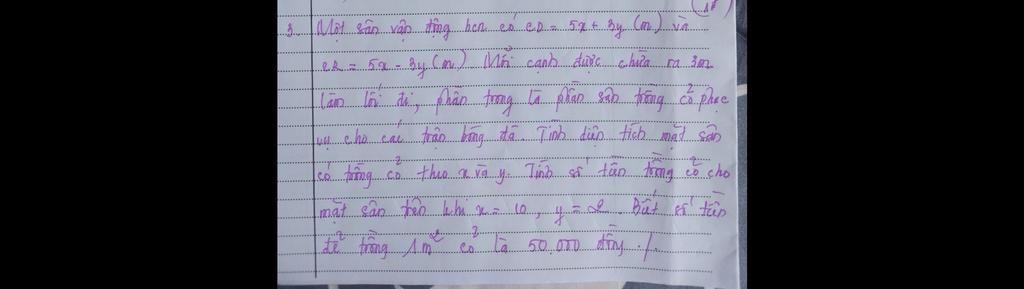 3. Một sân vận động hcn có CD = 5x + 3y (m) và
CR = 5x - 3y (m). Mỗi cạnh được chừa ra 3m
làm lối đi, phần trong là phần sân trồng cỏ phục
vụ cho các trận bóng đá. Tính diện tích mặt sân
có trồng cỏ theo x và y. Tính số tiền trồng cỏ cho
mặt sân trên khi x = 10, y = 2. Biết số tiền
để trồng 1m² cỏ là 50.000 đồng ./.